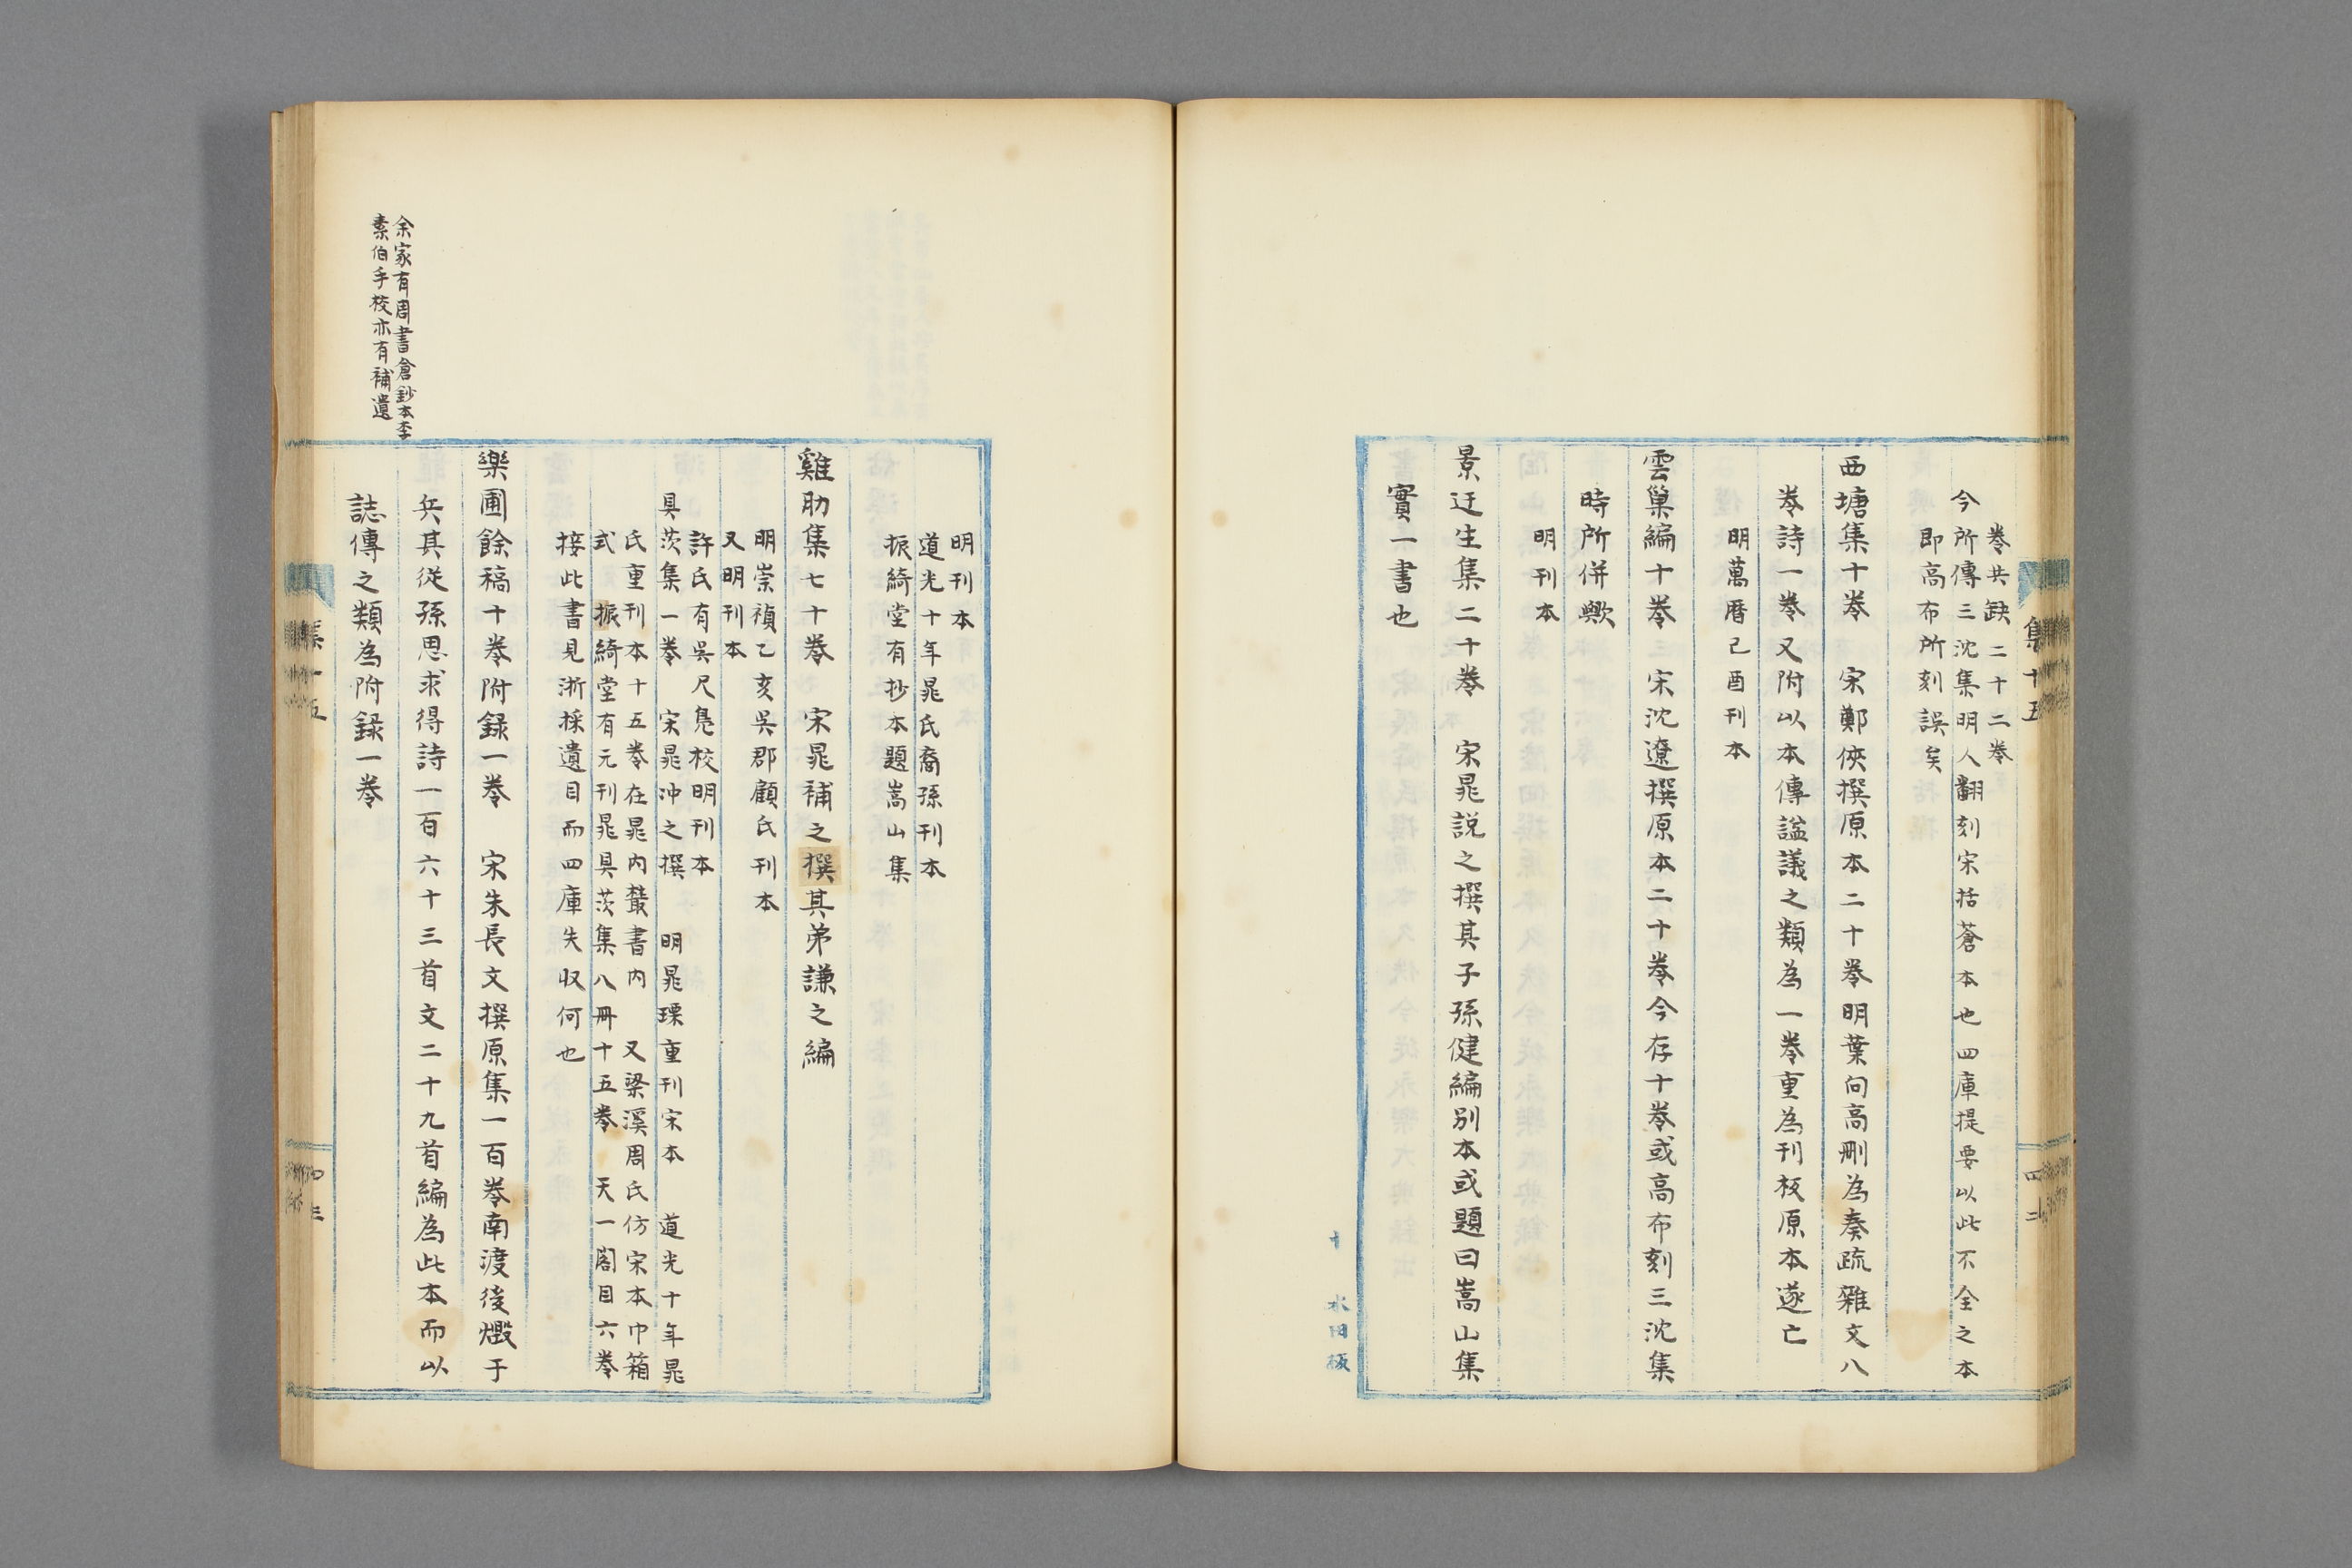 集十五
四十二
卷共缺二十二卷
今所傳三沈集明人翻刻宋括蒼本也四庫提要以此不全之本
即高布所刻誤矣
西塘集十卷　宋鄭俠撰原本二十卷明葉向高刪為奏疏雜文八
卷詩一卷又附以本傳謚議之類為一卷重為刊板原本遂亡
明萬曆己酉刊本
雲巢編十卷　宋沈遼撰原本二十卷今存十卷或高布刻三沈集
時所併歟
明刊本
景迂生集二十卷　宋晁説之撰其子孫健編別本或題曰嵩山集
實一書也
明刊本
道光十年晁氏裔孫刊本
振綺堂有抄本題嵩山集
雞肋集七十卷　宋晁補之撰其弟謙之編
明崇禎乙亥吳郡顧氏刊本
又明刊本
許氏有吳尺鳧校明刊本
具茨集一卷　宋晁冲之撰　明晁瑮重刊宋本　道光十年晁
氏重刊本十五卷在晁内叢書内　又梁溪周氏仿宋本巾箱
式　振綺堂有元刊晁具茨集八冊十五卷　天一閣目六卷
接此書見浙採遺目而四庫失収何也
樂圃餘稿十卷附録一卷　宋朱長文撰原集一百卷南渡後燬于
兵其從孫思求得詩一百六十三首文二十九首編為此本而以
誌傳之類為附録一卷
余家有周書倉鈔本李
素伯手校亦有補遺
集十五
四十三